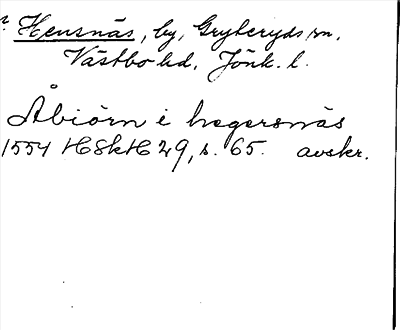 Hensnäs, by, Gryteryds sn,
Västbo hd, Jönk. l.
Åbiörn i hegersnäs
1554 HSkH 29, s. 65. avskr.